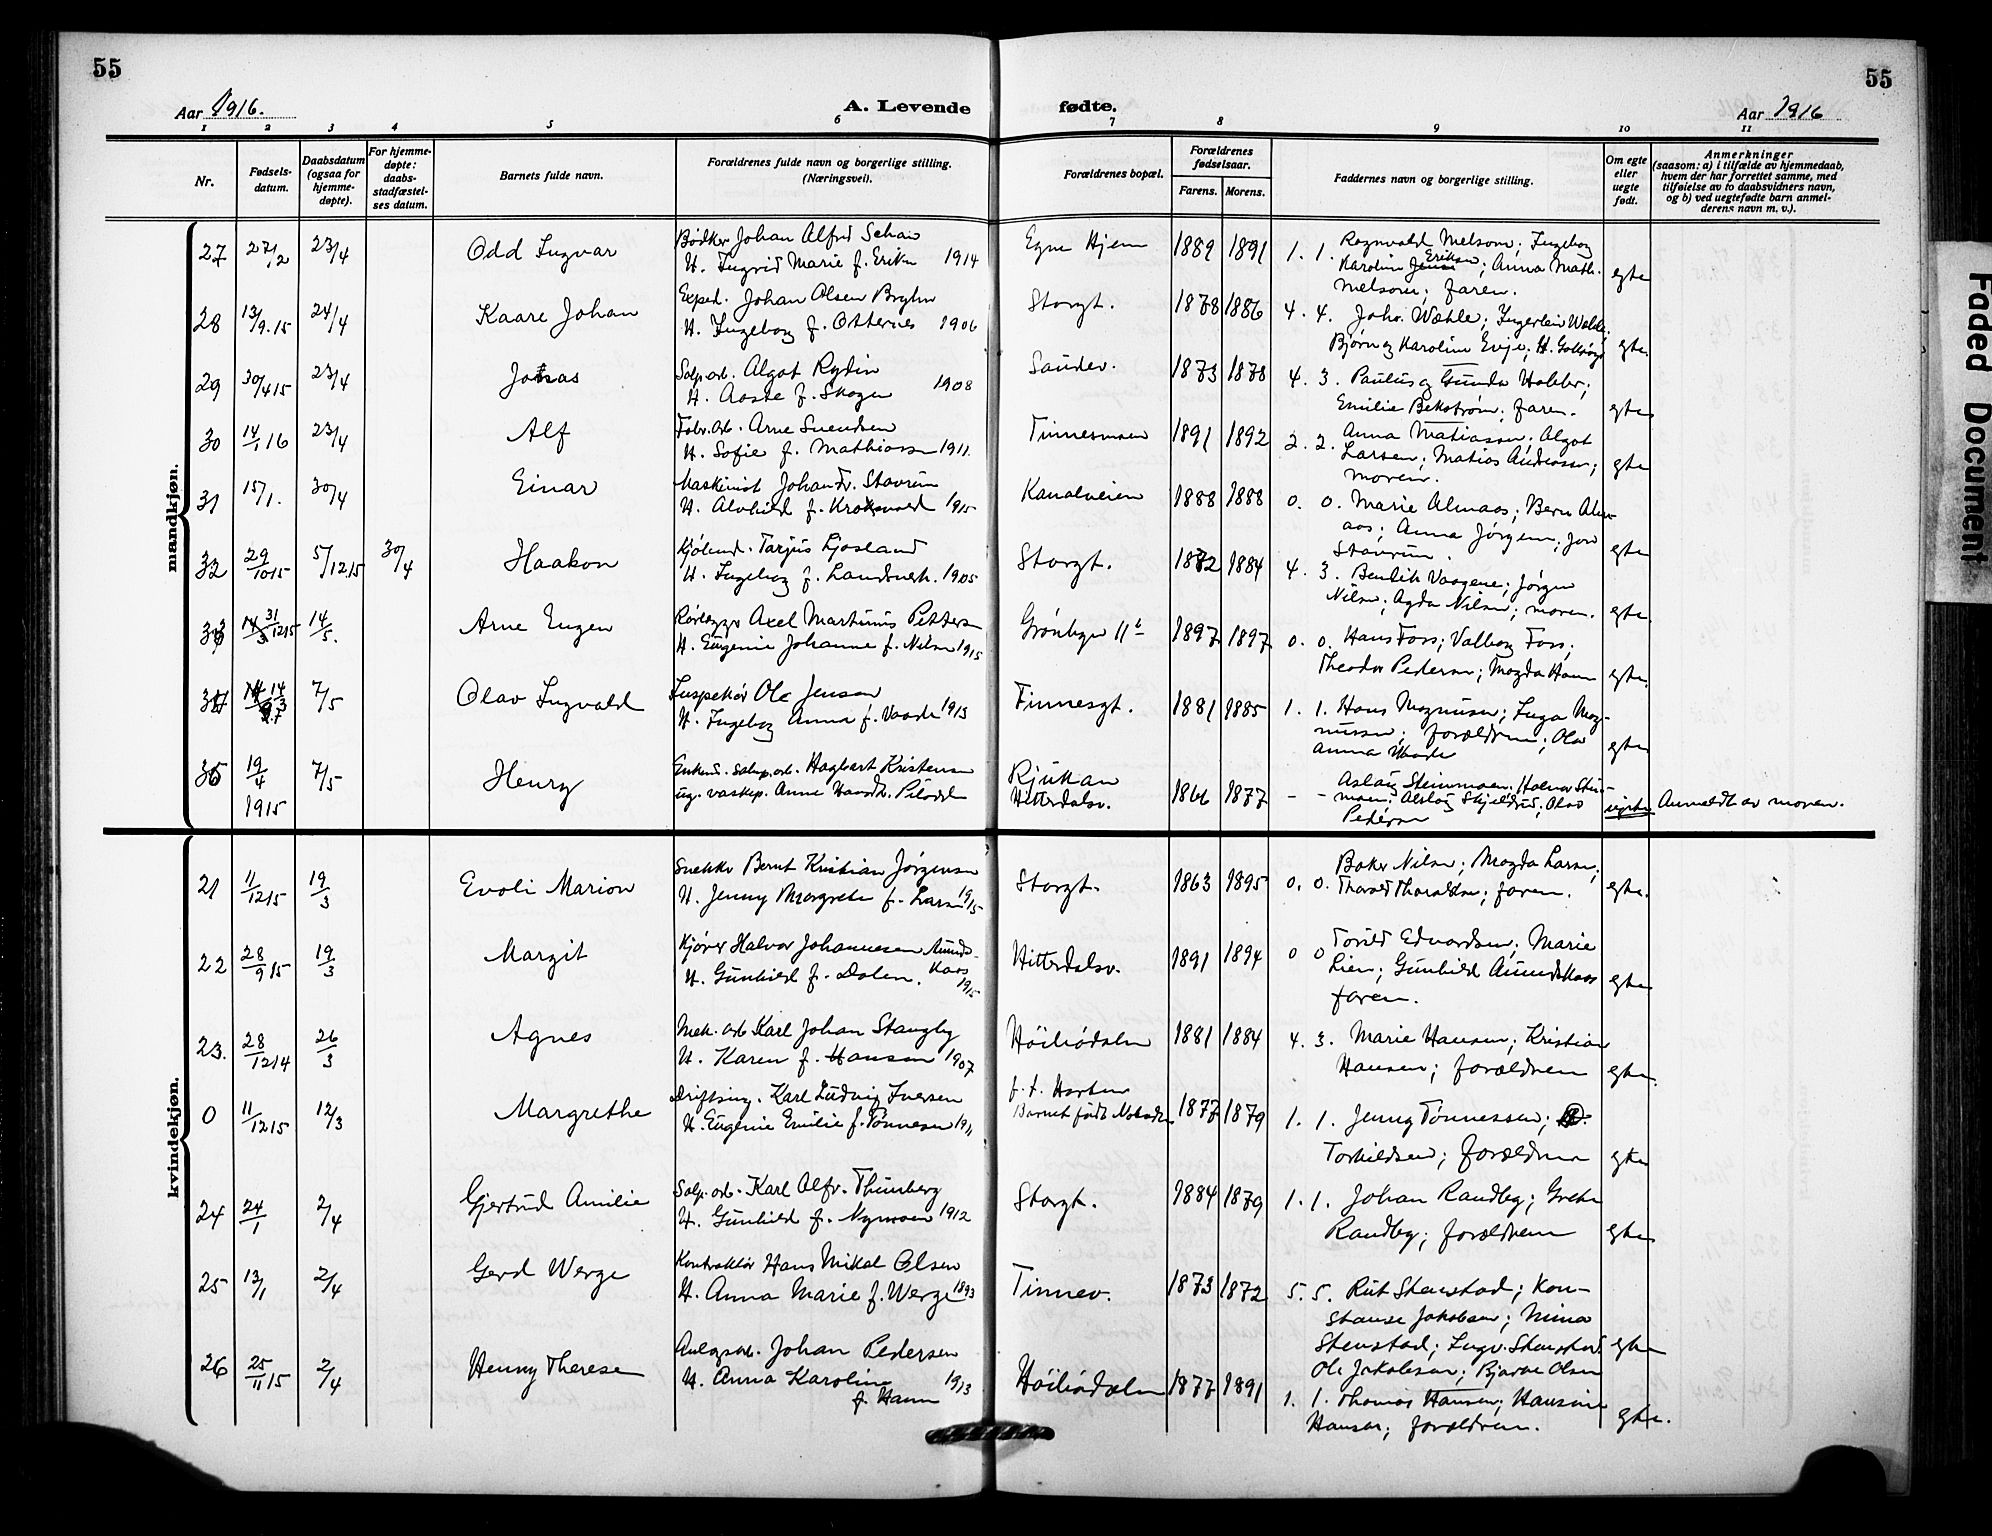 55
55
Aar 1916.
A. Levende
fødte.
Aar 1916
1 2 3 4 5 6 7 8 9 10 11
Nr.
Fødsels-
datum.
Daabsdatum
(ogsaa for
hjemme-
døpte).
For hjemme-
døpte:
daabs-
stadfæstel-
ses datum.
Barnets fulde navn.
Forældrenes fulde navn og borgerlige stilling.
(Næringsvei).
Forældrenes bopæl.
Forældrenes
fødselsaar.
Farens. Morens.
Faddernes navn og borgerlige stilling.
Om egte
eller
uegte
født.
Anmerkninger
(saasom: a) i tilfælde av hjemmedaab,
hvem der har forrettet samme, med
tilføielse av to daabsvidners navn,
og b) ved uegtefødte barn anmel-
derens navn m. v.).
mandkjøn.
27 27/2 23/4 Odd Ingvar
Bødker Johan Alfred
H. Ingrid Marie f. Eriksen 1914
Egne Hjem 1889 1891 1. 1.
Ragnvald Melsom; Ingeborg
Karoline Eriksen; Anna Math.
Melsom; faren.
egte
28 13/9.15 24/4 Kaare Johan
Exped. Johan Olsen
H. Ingeborg f. Otternes 1906
Storgt. 1878 1886 4. 4.
Johs. Wæhle;
Bjørn og Karoline Evje;
egte.
29 30/4 15 23/4 Jonas
Salp.arb. Algot Rydin
H. Aaste f. Skogen 1908
Saudev. 1873 1878 4. 3.
Paulus og Gunda
Emilie Bekstrøm; faren.
egte
30 14/1 16 23/4 Alf
Fabr.arb. Arne Svendsen
H. Sofie f. Mathiassen 1911.
Tinnesmoen 1891 1892 2. 2.
Anna Matiassen; Algot
Larsen; Matias Andreassen;
moren.
egte
31 15/1. 30/4 Einar
Maskinist Johan Fr. Stavrum
H. Alvhild f. 1915
Kanalveien 1888 1888 0. 0.
Marie Almaas; Bernt Alm-
aas; Anna Jørgen; Jon
Stavrum.
egte
32 29/10 15 5/12 15 30/4 Haakon
Kjølmd. Tarjus Ljosland
H. Ingeborg f. Landsverk. 1905
Storgt. 1872 1884 4. 3.
Bendik Vaagene; Jørgen
Nilsen; Agda Nilsen; moren.
egte
33 31/12 15 14/5. Arne Eugen
Rørlægger Axel Martinius Pettersen
H. Eugenie Johanne f. Nilsen 1915
Grønbyen 11b 1897 1897 0. 0.
Hans Foss; Valborg Foss;
Theodor Pedersen; Magda
egte.
34 14/3 7/5 Olav Ingvald
Inspektør Ole Jensen
H. Ingeborg Anna f. Vaade 1913
Finnesgt. 1881 1885 1. 1.
Hans Magnussen; Inga Mag-
nussen; forældrene; Olav
Anna Vaade
egte
35 19/4 1915 7/5 Henry
Enkemd. salp.arb. Hagbart Kristensen
ug. vaskep. Anne
Rjukan
Hitterdalsv.
1866 1877 - -
Aslaug Steinmoen. Halvor Stein-
moen; Aslaug Skjeldrud; Olav
Pedersen
uegte Anmeldt av moren.
kvindekjøn.
21 11/12 15 19/3 Evoli Marion
Snekker Bernt Kristian Jørgensen
H. Jenny Margrethe f. Larsen 1915
Storgt. 1863 1895 0. 0.
Nilsen; Magda Larsen;
Tharald Tharaldsen; faren.
egte.
22 28/9 15 19/3 Margit
Kjører Halvor Johannesen Aamds-
kaas
H. Gunhild f. Dalen. 1915
Hitterdalsv. 1891 1894 0 0
Torild Edvardsen; Marie
Lien; Gunhild Aamdskaas
faren.
egte
23. 28/12 14 26/3 Agnes
Mek. arb. Karl Johan Stangeby
H. Karen f. Hansen 1907
Høibødalen 1881 1884 4. 3.
Marie Hansen; Kristian
Hansen; forældrene
egte.
0 11/12 15 12/3 Margrethe
Driftsing. Karl Ludvig Iversen
H. Eugenie Emilie f. Tønnesen 1911
f. t. Horten
Barnet født Notodden
1877 1879 1. 1.
Jenny Tønnessen;
Torkildsen; forældrene
egte
24 24/1 2/4 Gjertrud Amilie
Salp. arb. Karl Alfr. Thunberg
H. Gunhild f. Nymoen 1912
Storgt. 1884 1879 1. 1.
Johan Randby; Grethe
Randby; forældrene
egte
25 13/1 2/4 Gerd Werge
Kontraktør Hans Mikal Olsen
H. Anna Marie f. Werge 1893
Tinnev. 1873 1872 5. 5.
Rut Stenstad; Kon-
stanse Jakobsen; Nina
Stenstad; Ingv. Stenstad
Ole Jakobsen; Bjarne Olsen
egte
26 25/11 15 2/4 Henny Therese
Anlægsarb. Johan Pedersen
H. Anna Karoline 1913
f. Hansen
Høibødalen 1877 1891 1. 1.
Thomas Hansen; Hansine
Hansen; forældrene.
egte.
Faded Document